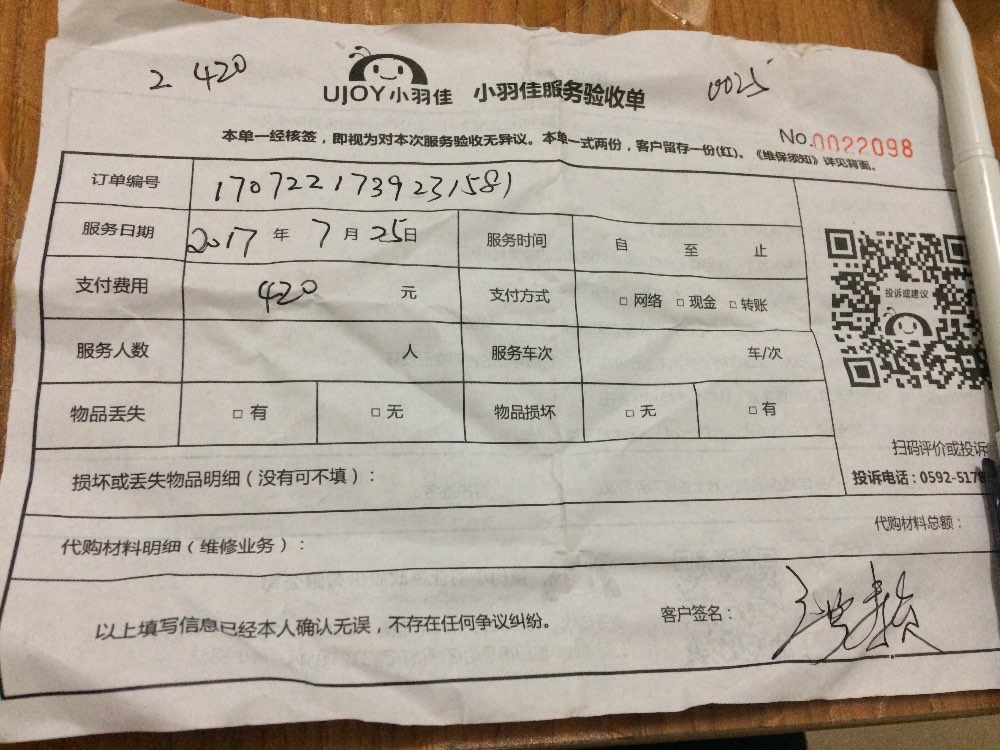 2 420
0025
UJOY小羽佳 小羽佳服务验收单
No.0022098
本单一经核签，即视为对本次服务验收无异议。本单一式两份，客户留存一份(红)。《维保须知》详见背面。
订单编号 1707221739231581
服务日期 2017 年 7 月 25日 服务时间 自 至 止
支付费用 420 元 支付方式 □ 网络 □ 现金 □ 转账
投诉或建议
服务人数 人 服务车次 车/次
物品丢失 □ 有 □ 无 物品损坏 □ 无 □ 有
扫码评价或投诉
投诉电话：0592-517
损坏或丢失物品明细（没有可不填）：
代购材料明细（维修业务）： 代购材料总额：
以上填写信息已经本人确认无误，不存在任何争议纠纷。 客户签名：